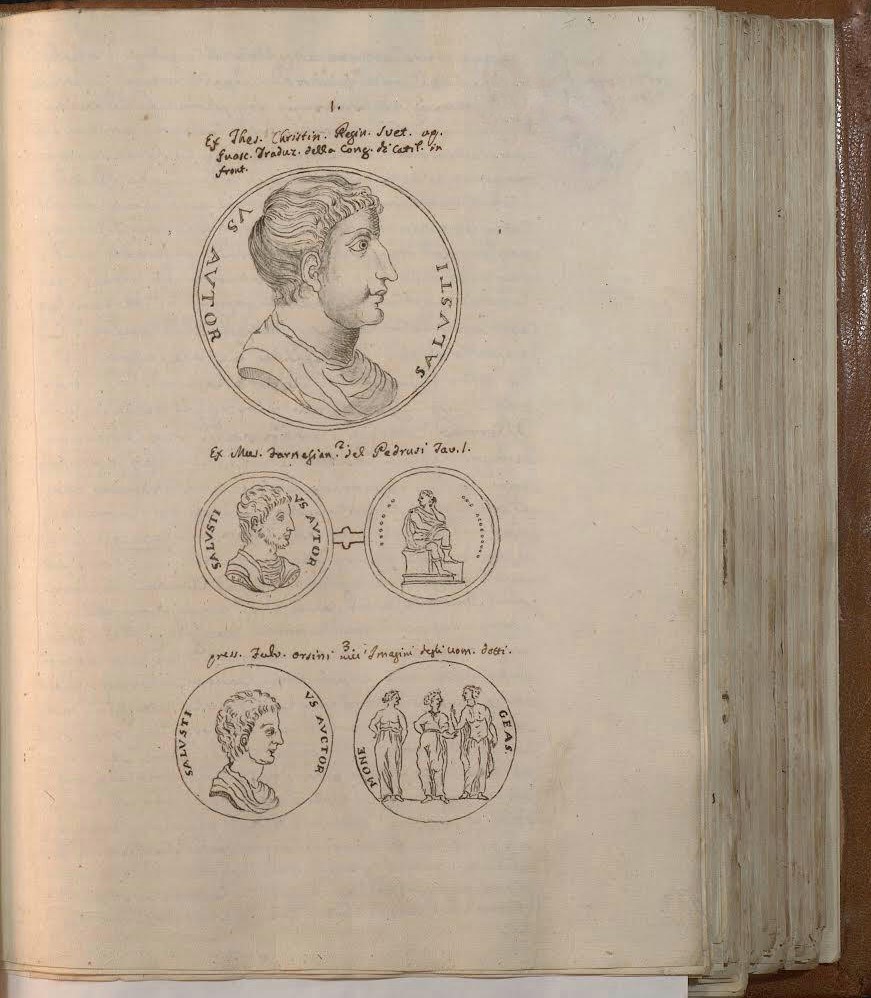 1.
Ex Thes. Christin. Regin. Svet. ap.
Traduz. della Cong. di Catil. in
front.
SALVSTI
VS AVTOR
Ex Mus. Farnesian. 2 del Pedrusi Tav. 1.
SALVSTI
VS AVTOR
press. Fulv. Orsini 3 Imagini degli uom. dotti.
SALVSTI
VS AVCTOR
MONE
GEAS.